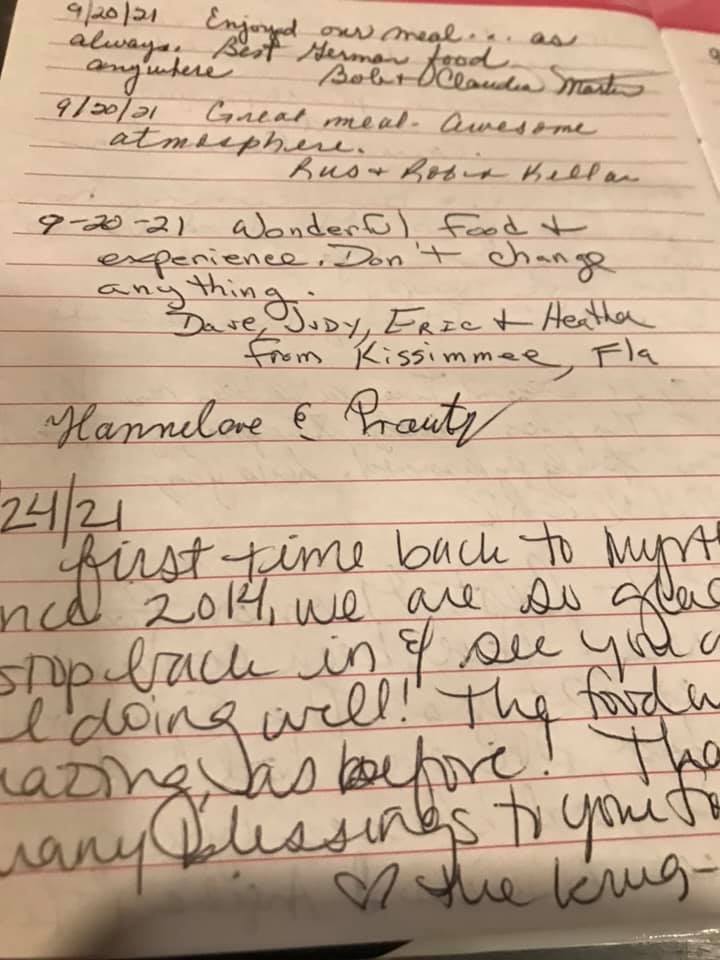 9/20/21 Enjoyed our meal... as
always. Best German food
anywhere Bob + Claudia Martin
9/20/21 Great meal. Awesome
atmosphere.
Rus + Robin
9-20-21 Wonderful food +
experience. Don't change
anything.
Dave, JUDY, ERIC + Heather
from Kissimmee, Fla
Hannelore E Prautz
24/21
first time back to Myrt
nce 2014, we are so glad
stop back in & see you a
l doing well! The food w
azing, as before! Tha
many Blessings to your fa
♡ the Krug-